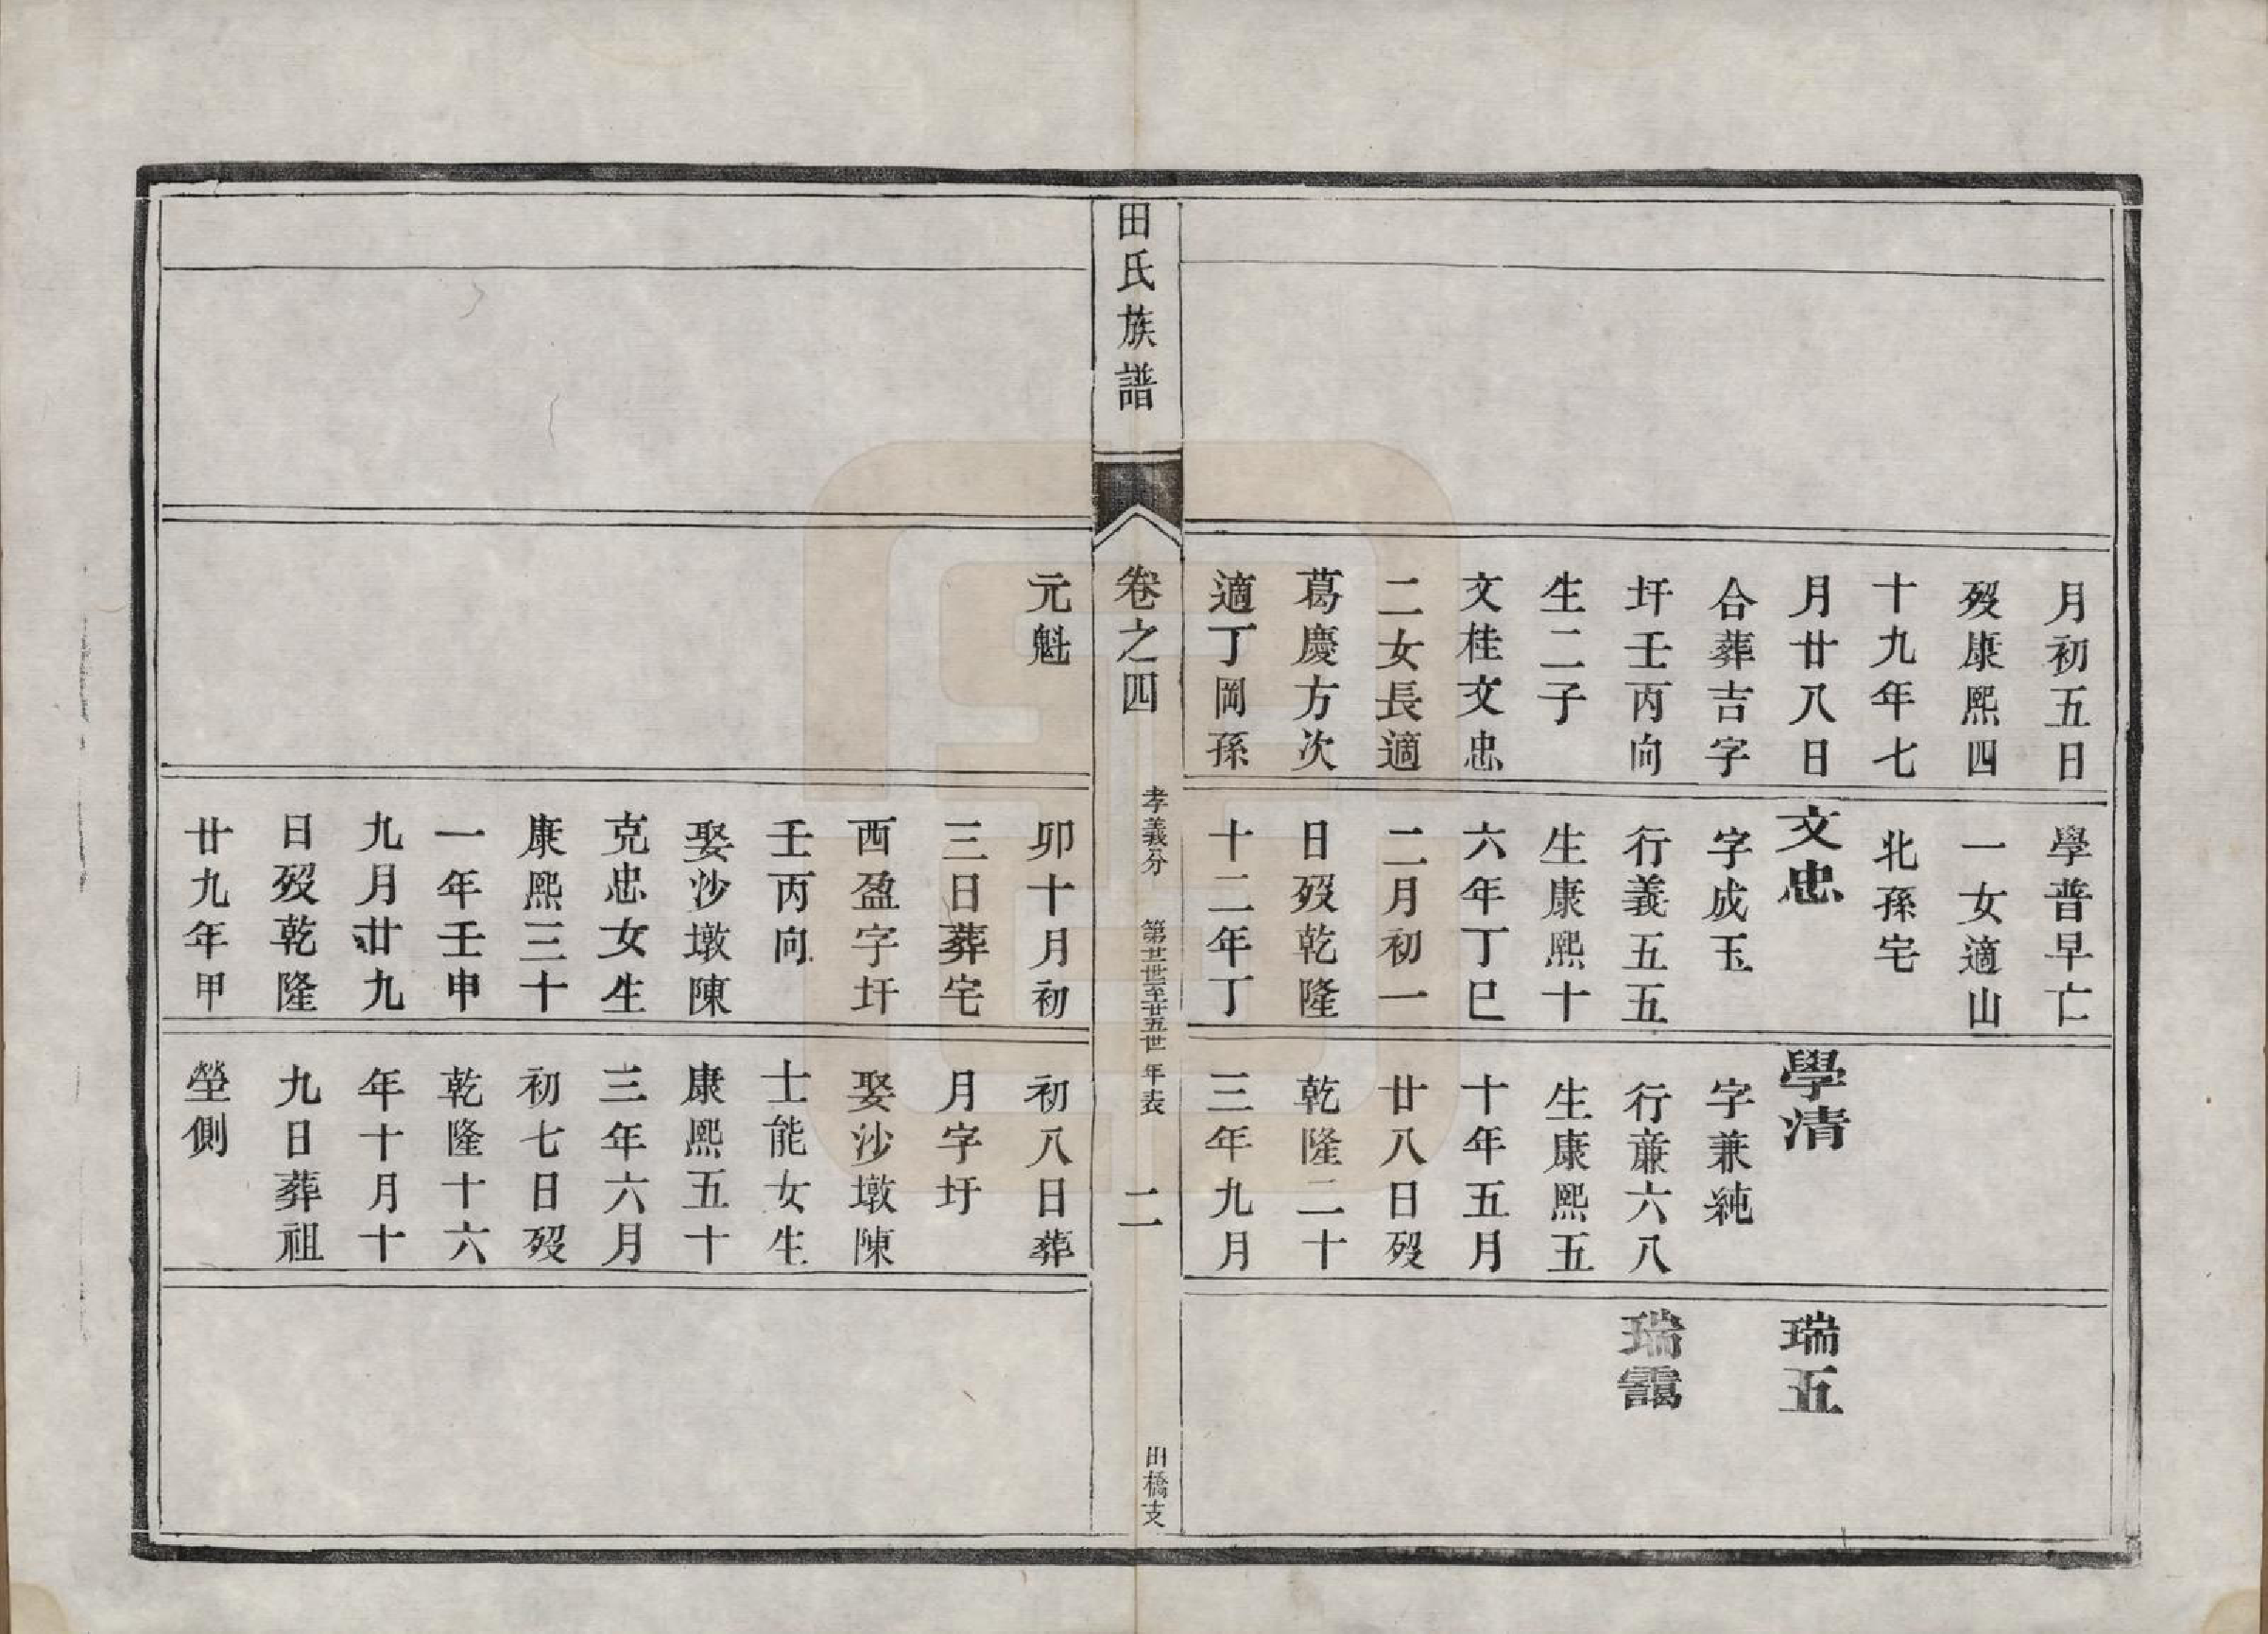 月初五日
歿康熙四
十九年七
月廿八日
合葬吉字
圩壬丙向
生二子
文桂文忠
二女長適
葛慶方次
適丁岡孫
元魁
學普早亡
一女適山
北孫宅
文忠
字成玉
行義五五
生康熙十
六年丁巳
二月初一
日歿乾隆
十二年丁
卯十月初
三日葬宅
西盈字圩
壬丙向
娶沙墩陳
克忠女生
康熙三十
一年壬申
九月廿九
日歿乾隆
廿九年甲
學清
字兼純
行蔴六八
生康熙五
十年五月
廿八日歿
乾隆二十
三年九月
初八日葬
月字圩
娶沙墩陳
士能女生
康熙五十
三年六月
初七日歿
乾隆十六
年十月十
九日葬祖
塋側
瑞五
瑞靄
田氏族譜
卷之四
孝義分
第廿世至廿五世年表
二
田橋支